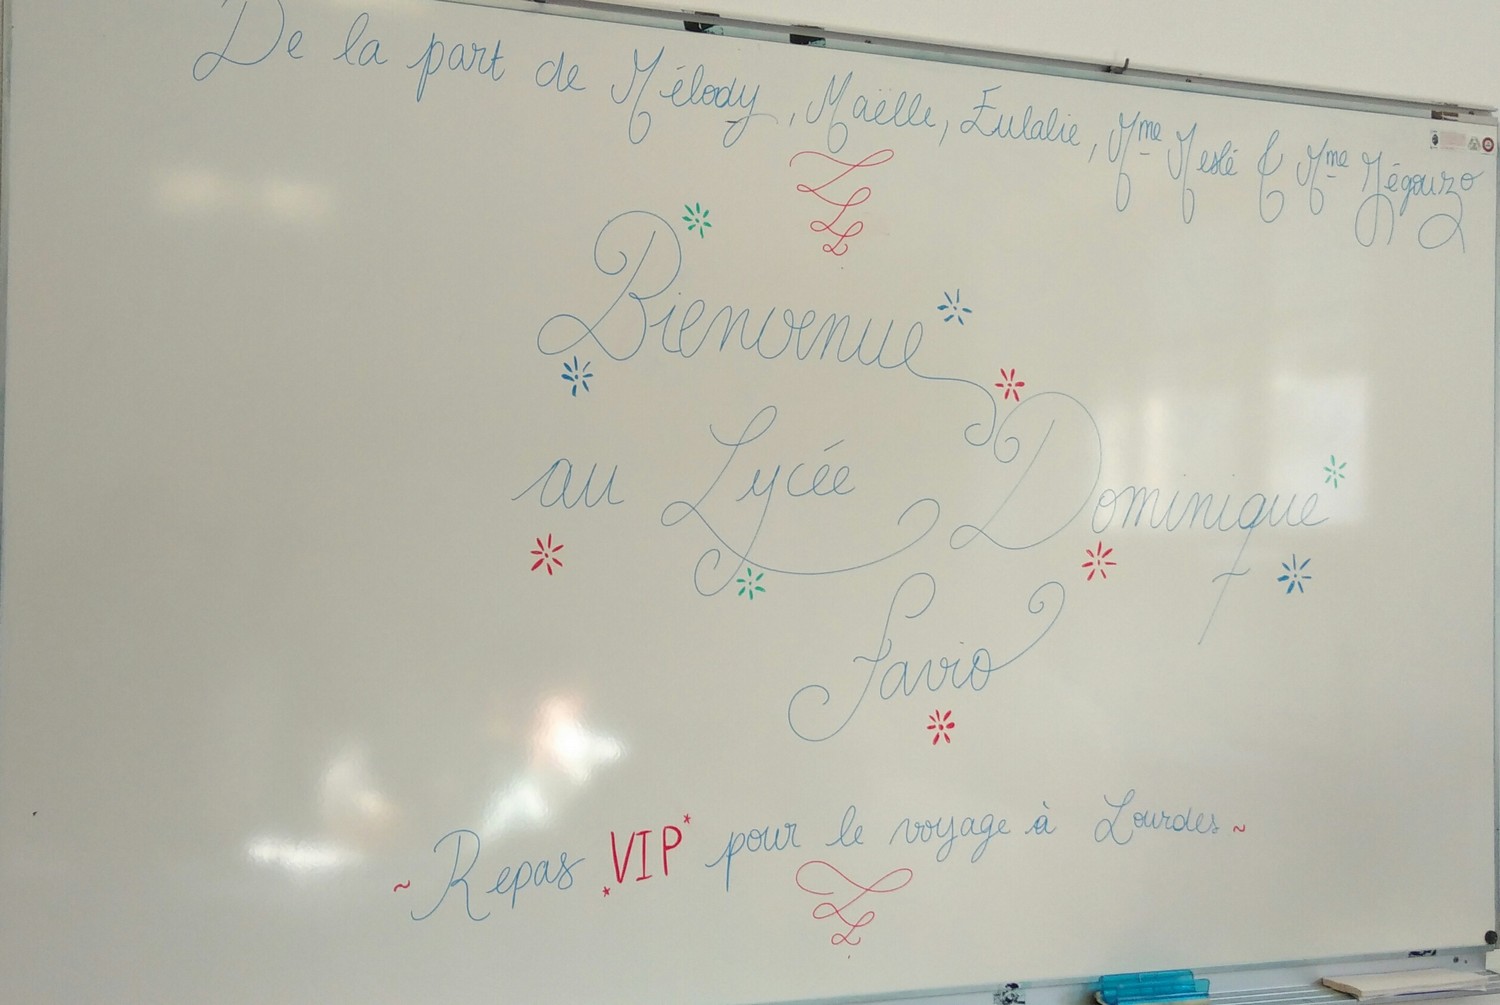 De la part de Mélody, Maëlle, Eulalie, Mme Meslé & Mme Mégouzo
Bienvenue
au Lycée Dominique
Savio
~ Repas *VIP* pour le voyage à Lourdes ~